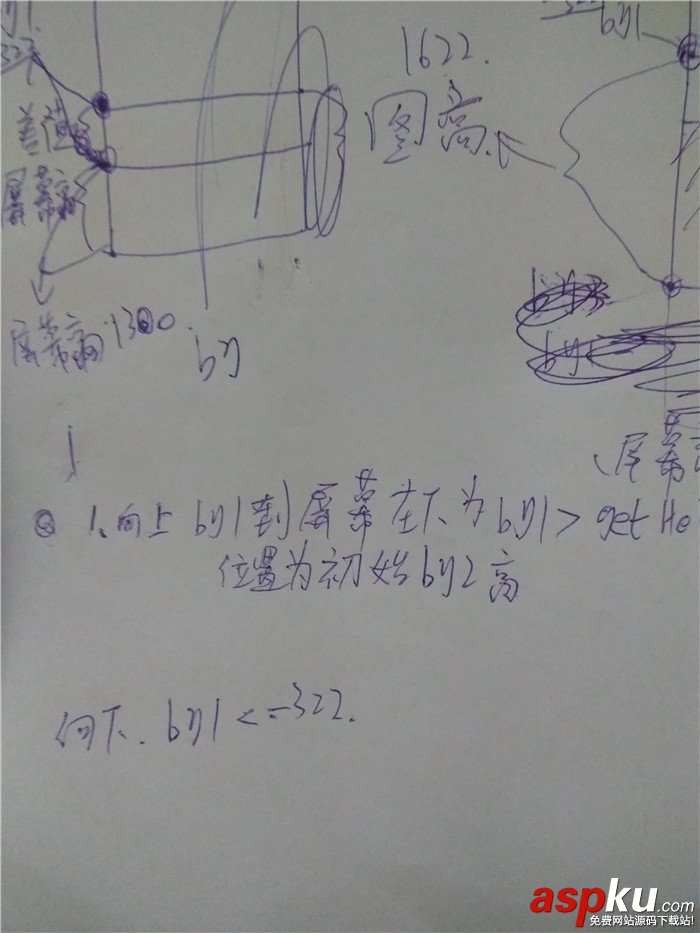 by1
-322
by1
1622.
图高.
差值
屏幕高
屏幕高1300.
by
屏幕高
1、向上by1到屏幕左下为by1> getHe
位置为初始by2高
向下. by1<=-322.
aspku.com
免费网站源码下载站!